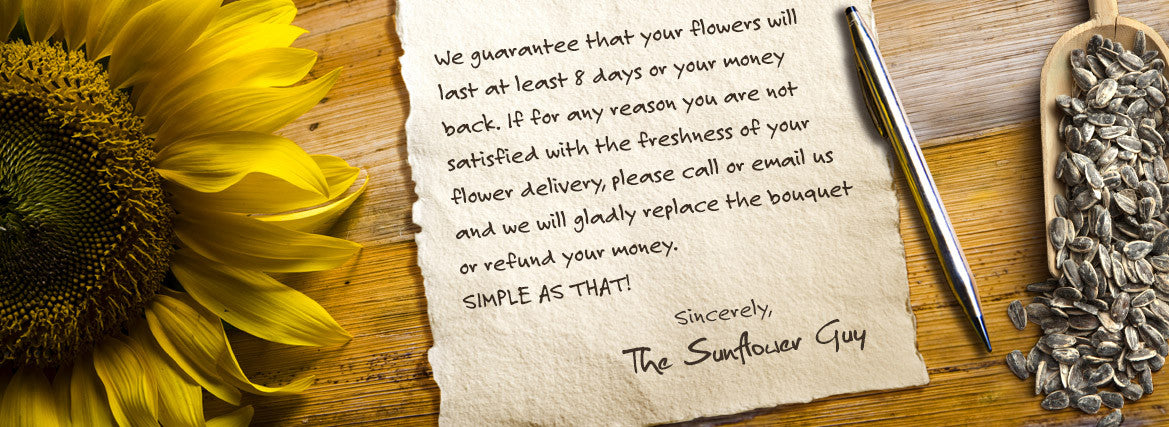 We guarantee that your flowers will
last at least 8 days or your money
back. If for any reason you are not
satisfied with the freshness of your
flower delivery, please call or email us
and we will gladly replace the bouquet
or refund your money.
SIMPLE AS THAT!
Sincerely,
The Sunflower Guy